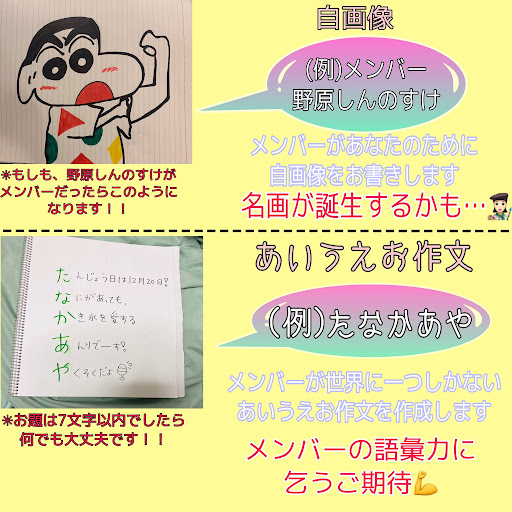 自画像
(例)メンバー
野原しんのすけ
メンバーがあなたのために
自画像をお書きします
名画が誕生するかも…
*もしも、野原しんのすけが
メンバーだったらこのように
なります!!
あいうえお作文
(例)たなかあや
メンバーが世界に一つしかない
あいうえお作文を作成します
メンバーの語彙力に
乞うご期待
たんじょう日は12月20日!
なにがあっても、
かき氷を愛する
あんりでーす!
やくそくだよ
*お題は7文字以内でしたら
何でも大丈夫です!!